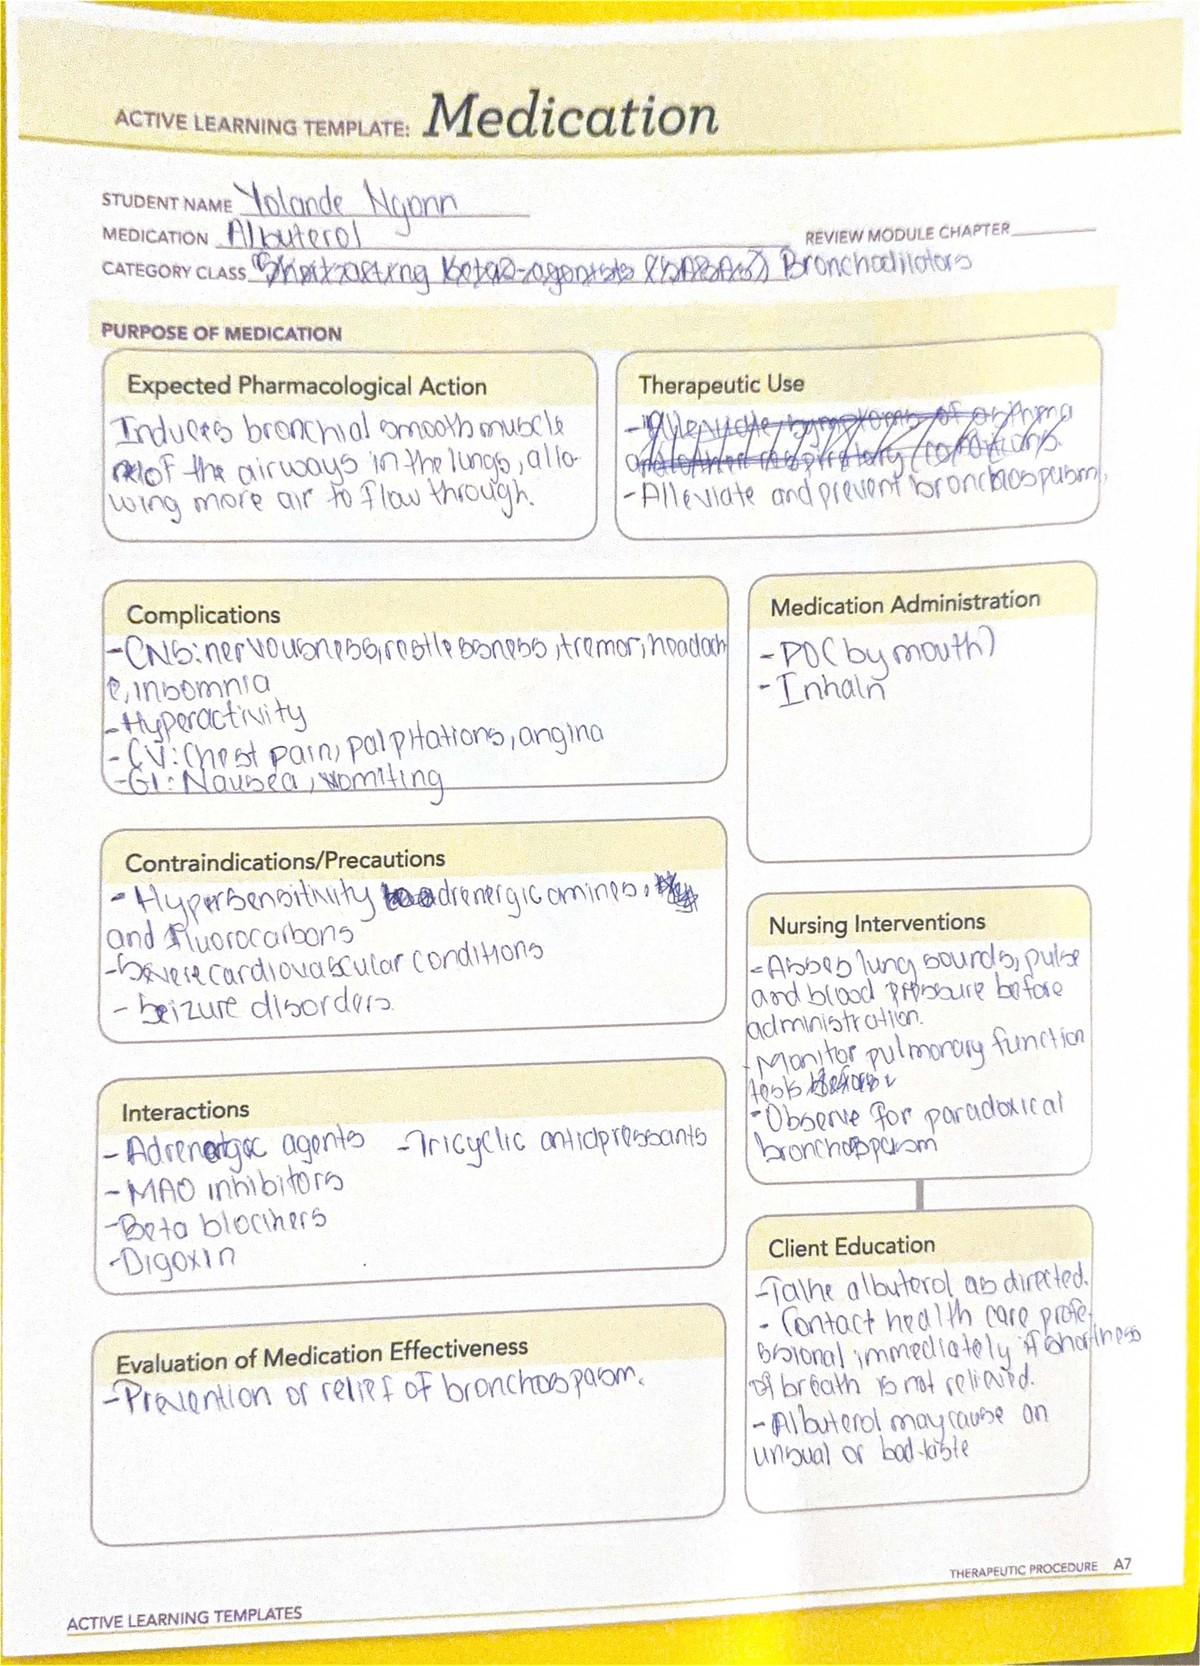 ACTIVE LEARNING TEMPLATE: Medication
STUDENT NAME Yolande Ngonn
MEDICATION Albuterol
REVIEW MODULE CHAPTER
CATEGORY CLASS Short-acting beta2-agonists (SABAs) Bronchodilators
PURPOSE OF MEDICATION
Expected Pharmacological Action
Induces bronchial smooth muscle
of the airways in the lungs, allo-
wing more air to flow through.
Therapeutic Use
- Alleviate symptoms of asthma
and other respiratory conditions.
- Alleviate and prevent bronchospasm.
Complications
- CNS: nervousness, restlessness, tremor, headach
e, insomnia
- Hyperactivity
- CV: Chest pain, palpitations, angina
- GI: Nausea, vomiting
Medication Administration
- PO (by mouth)
- Inhaln
Contraindications/Precautions
- Hypersensitivity to adrenergic amines,
and fluorocarbons
- Severe cardiovascular conditions
- Seizure disorders.
Nursing Interventions
- Assess lung sounds, pulse
and blood pressure before
administration.
- Monitor pulmonary function
tests before
- Observe for paradoxical
bronchospasm
Interactions
- Adrenergic agents - Tricyclic antidpressants
- MAO inhibitors
- Beta blockers
- Digoxin
Client Education
- Take albuterol as directed.
- Contact health care profe-
ssional immediately if shortness
of breath is not relieved.
- Albuterol may cause an
unsual or bad taste
Evaluation of Medication Effectiveness
- Prevention or relief of bronchospasm.
THERAPEUTIC PROCEDURE A7
ACTIVE LEARNING TEMPLATES